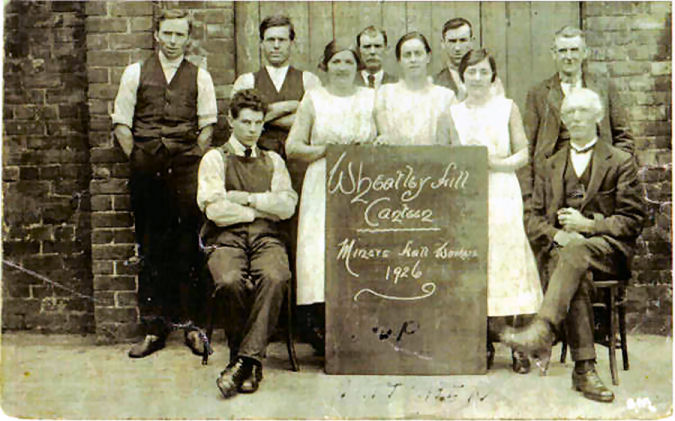 Wheatley Hill
Canteen
Miners Hall Workers
1926